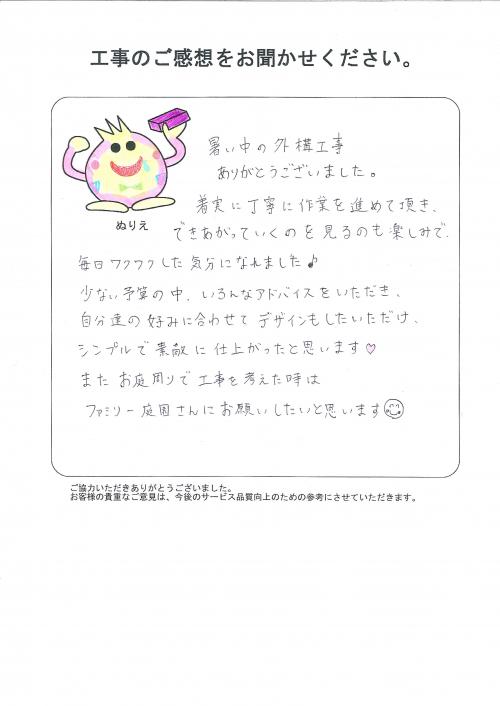 工事のご感想をお聞かせください。
暑い中の外構工事
ありがとうございました。
ぬりえ
着実に丁寧に作業を進めて頂き、
できあがっていくのを見るのも楽しみで、
毎日ワクワクした気分になれました♪
少ない予算の中、いろんなアドバイスをいただき、
自分達の好みに合わせてデザインもしたいただけ、
シンプルで素敵に仕上がったと思います♡
またお庭周りで工事を考えた時は
ファミリー庭園さんにお願いしたいと思います
ご協力いただきありがとうございました。
お客様の貴重なご意見は、今後のサービス品質向上のための参考にさせていただきます。